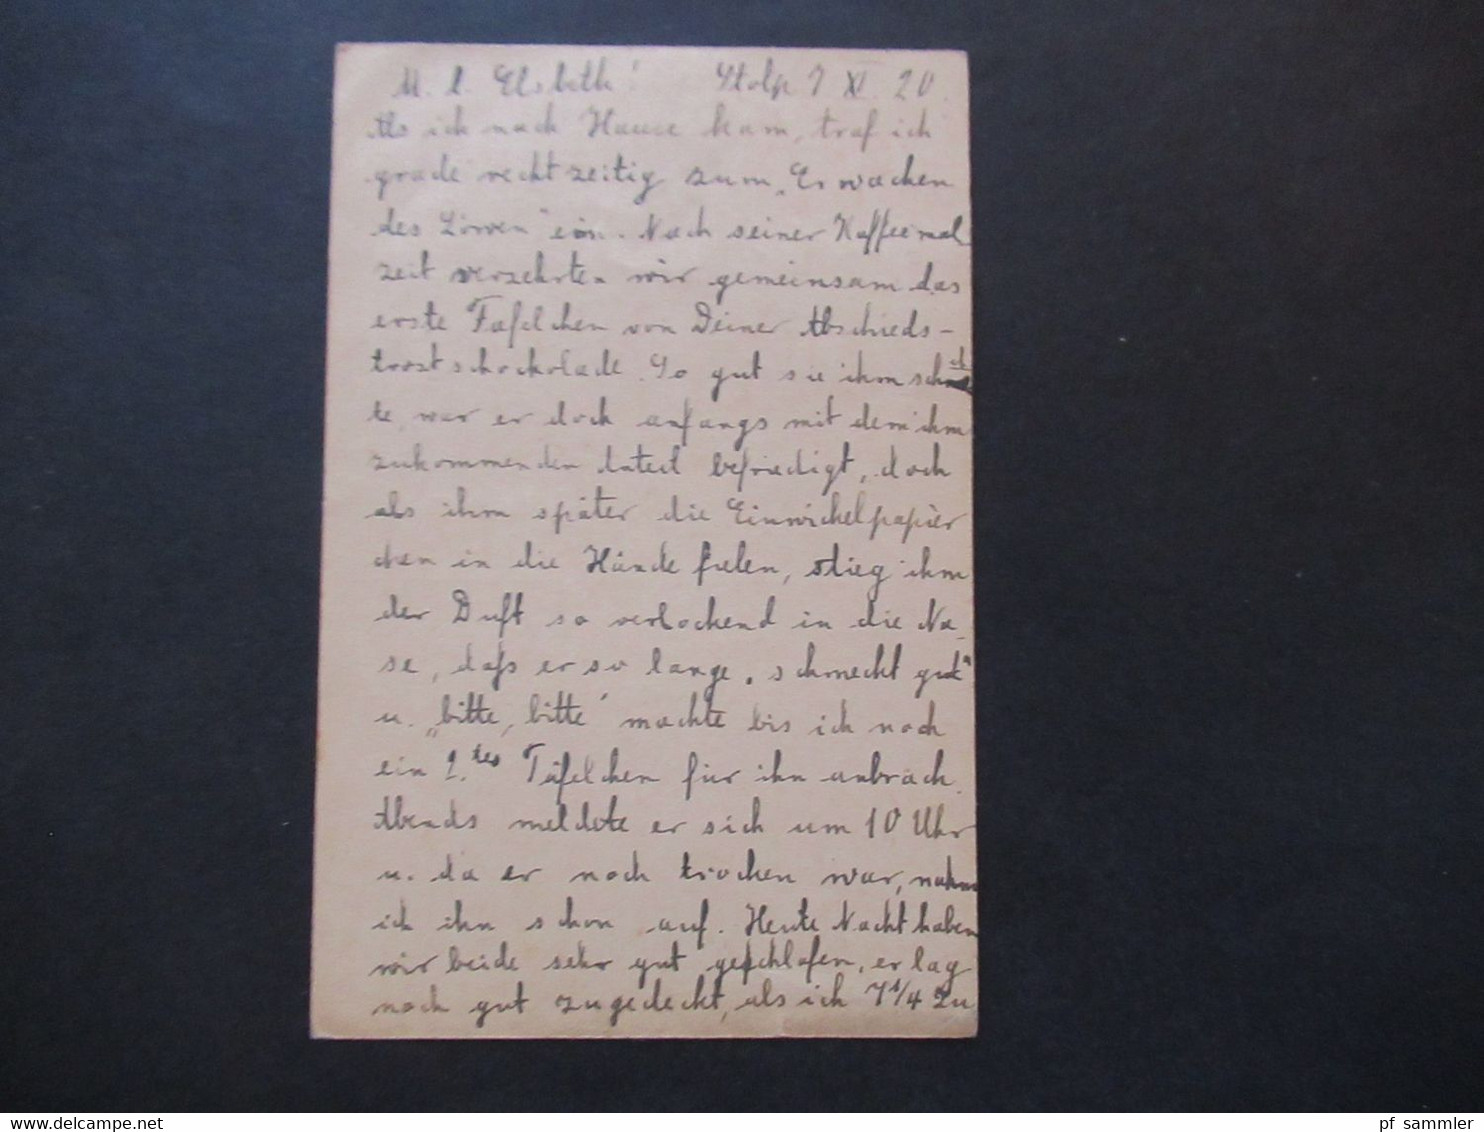 M. l. Elsbeth! Stolp 7 XI. 20.
Als ich nach Hause kam, traf ich
grade rechtzeitig zum „Erwachen
des Löwen" ein. Nach seiner Kaffeemal
zeit verzehrten wir gemeinsam das
erste Täfelchen von Deiner Abschieds-
trostschockolade. So gut sie ihm schmeck
te, war er doch anfangs mit dem ihm
zukommenden Anteil befriedigt, doch
als ihm später die Einwickelpapier
chen in die Hände fielen, stieg ihm
der Duft so verlockend in die Na-
se, daß er so lange „schmeckt gut"
u. „bitte, bitte" machte bis ich noch
ein 2.tes Täfelchen für ihn anbrach.
Abends meldete er sich um 10 Uhr
u. da er noch trocken war, nahm
ich ihn schon auf. Heute Nacht haben
wir beide sehr gut geschlafen, er lag
noch gut zugedeckt, als ich 7 1/4 zu
www.delcampe.net
pf_sammler